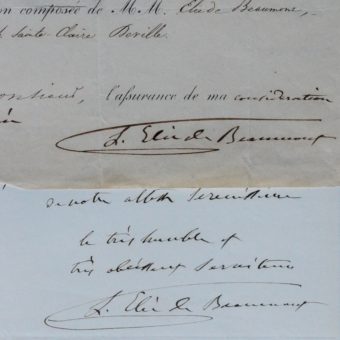 on composée de M. M. Elie de Beaumont,
Sainte-Claire Deville.
Monsieur, l'assurance de ma considération
L. Elie de Beaumont
de votre altesse Sérénissime
le très humble et
très obéissant serviteur
L. Elie de Beaumont